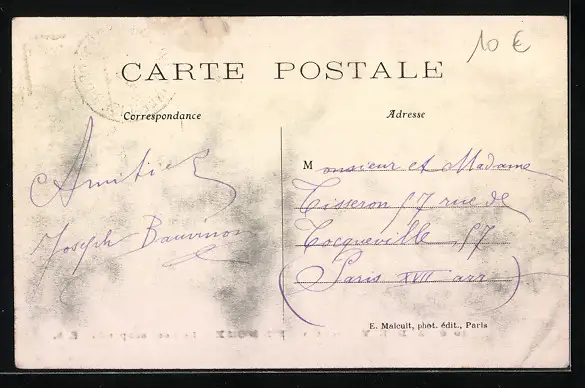 10 €
CARTE POSTALE
Correspondance
Adresse
Amitiés
Joseph Bauvinon
Monsieur et Madame
Tisseron 57 rue de
Tocqueville 57
(Paris XVII arr)
E. Malcuit, phot. édit., Paris